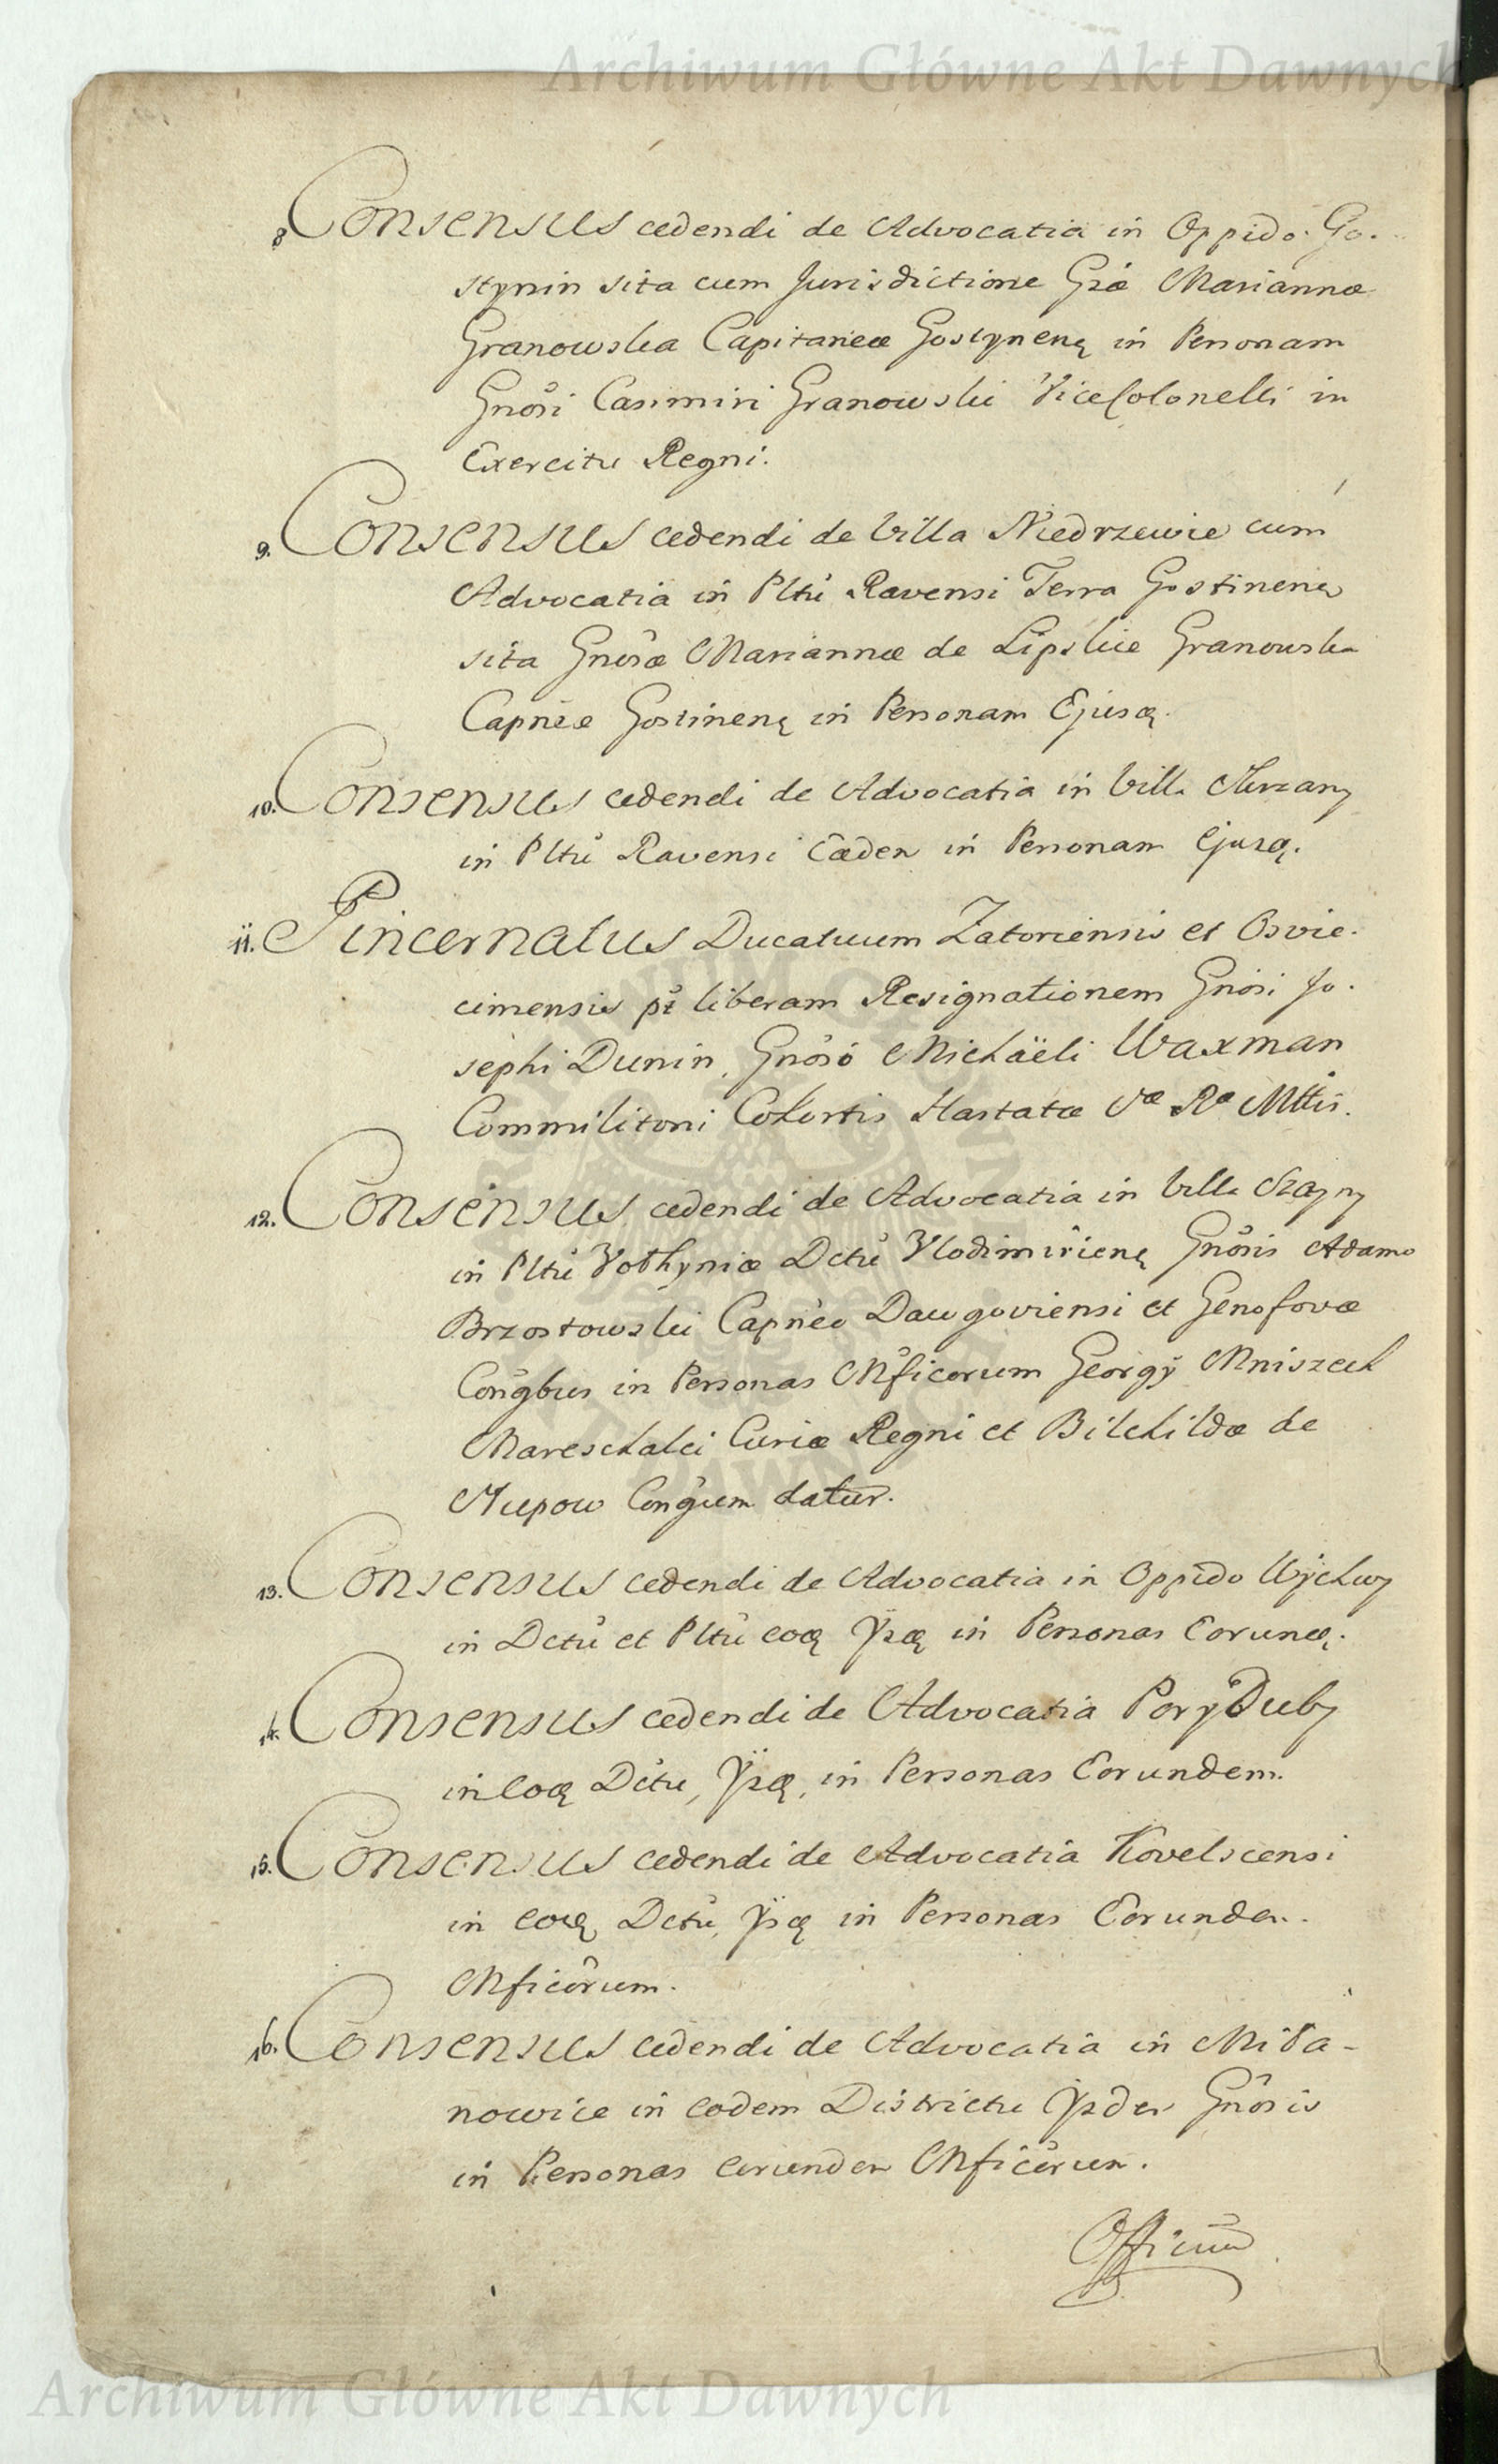 Archiwum Główne Akt Dawnych
8 Consensus cedendi de Advocatia in Oppido Go-
stynin sita cum Jurisdictione Gsæ Mariannæ
Granowska Capitaneæ Gostynenę in Personam
Gnosi Casimiri Granowski ViceColonelli in
Exercitu Regni.
9. Consensus cedendi de Villa Niedrzewie cum
Advocatia in Pltu Ravensi Terra Gostinenę
sita Gnosæ Mariannæ de Lipskie Granowska
Capneæ Gostinenę in Personam Ejusą.
10. Consensus cedendi de Advocatia in Villa
in Pltu Ravensi Eæden in Personam Ejusą.
11. Pincernatus Ducatuum Zatoriensis et Osvie-
cimensis pt liberam Resignationem Gnosi Jo-
sephi Dunin, Gnoso Michäeli Waxman
Commilitoni Cohortis Hastatæ Sæ Ræ Mttis.
12. Consensus cedendi de Advocatia in Villa
in Pltu Volhyniæ Dctu Vlodimirienę Gnosis Adamo
Brzostowski Capneo Dawgoviensi et Genofovæ
Congbus in Personas Mficorum Georgÿ Mniszech
Mareschalci Curiæ Regni et Bilchildæ de
Congum datur.
13. Consensus cedendi de Advocatia in Oppido
in Dctu et Pltu eoą Ysą in Personas Eoruną.
14. Consensus cedendi de Advocatia PoryDuby
in Eoą Dctu, Ysą, in Personas Eorundem.
15. Consensus cedendi de Advocatia Kovelscensi
in eoą Dctu, Ysą in Personas Eorunden.
Mficorum.
16. Consensus cedendi de Advocatia in Mila-
nowice in eodem Districtu Ysden Gnosis
in Personas eorunden Mficorum.
Officium
Archiwum Główne Akt Dawnych